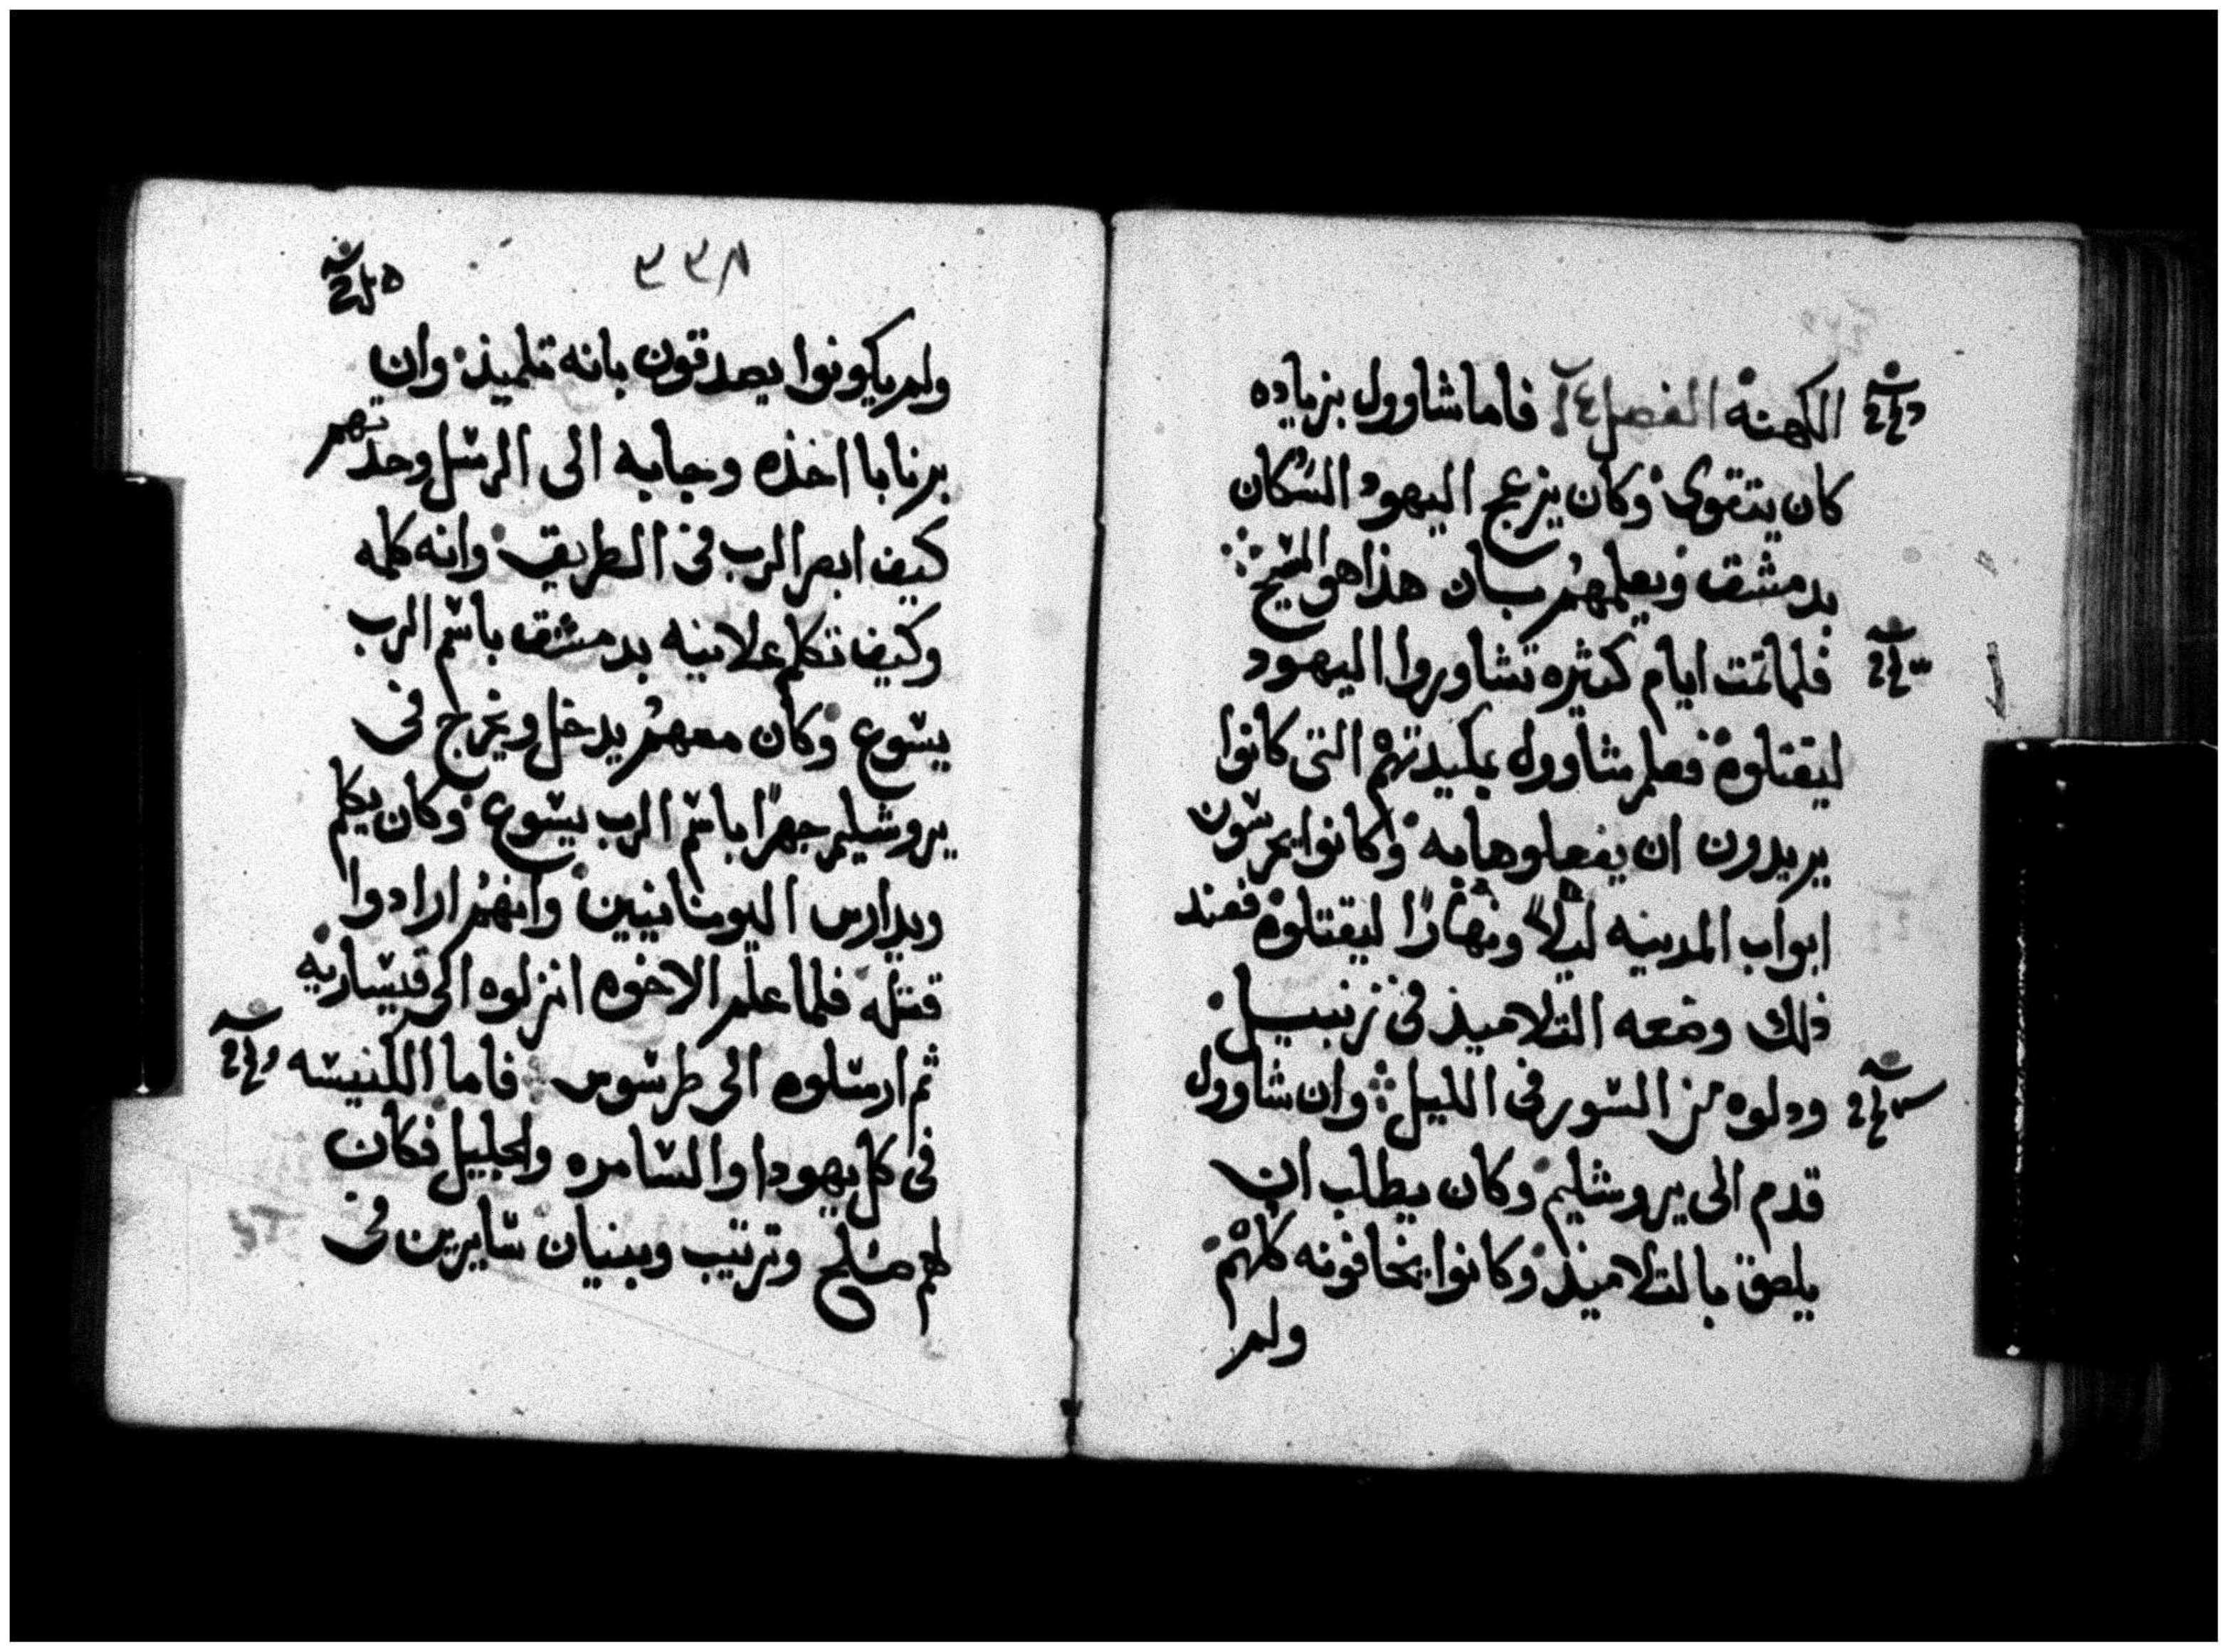 الكهنة الفصل ١٤ فاما شاوول بزياده
كان يتقوى وكان يزعج اليهود السكان
بدمشق ويعلمهم بان هذا هو المسيح
فلما تمت ايام كثيره تشاوروا اليهود
ليقتلوه فعلم شاوول بمكيدتهم التى كانوا
يريدون ان يفعلوها به وكانوا يحرسون
ابواب المدينه ليلاً ونهارًا ليقتلوه فعند
ذلك وضعه التلاميذ فى زنبيل
ودلوه من السور فى الليل وان شاوول
قدم الى يروشليم وكان يطلب ان
يلصق بالتلاميذ وكانوا يخافونه كلهم
ولم
٣٣٨
ولم يكونوا يصدقون بانه تلميذ وان
برنابا اخذه وجا به الى الرسل وحدتهم
كيف ابصر الرب فى الطريق وانه كلمه
وكيف تكلم علانيه بدمشق باسم الرب
يسوع وكان معهم يدخل ويخرج فى
يروشليم جهرًا باسم الرب يسوع وكان يكلم
ويدارس اليونانيين وانهم ارادوا
قتله فلما علم الاخوه انزلوه الى قيساريه
ثم ارسلوه الى طرسوس فاما الكنيسه
فى كل يهودا والسامره والجليل فكان
لهم صلح وترتيب وبنيان سايرين فى